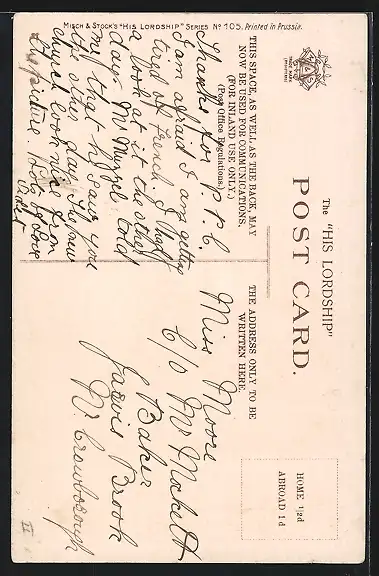 MISCH & STOCK'S "HIS LORDSHIP" SERIES No 105. Printed in Prussia.
The "HIS LORDSHIP"
POST CARD.
THIS SPACE, AS WELL AS THE BACK, MAY
NOW BE USED FOR COMMUNICATIONS.
(FOR INLAND USE ONLY.)
(Post Office Regulations.)
THE ADDRESS ONLY TO BE
WRITTEN HERE.
HOME ½d
ABROAD 1d
TRADE MARK
Thanks for P.P.C.
I am afraid I am getting
tired of French. I had
a look at it the other
day. Mr told
me that he saw you
the other day. The new
church look nice from
the picture. Lots of love
Miss Moore
C/o Mr Mockett
Baker
Jarvis Brook
Nr. Crowborough
II